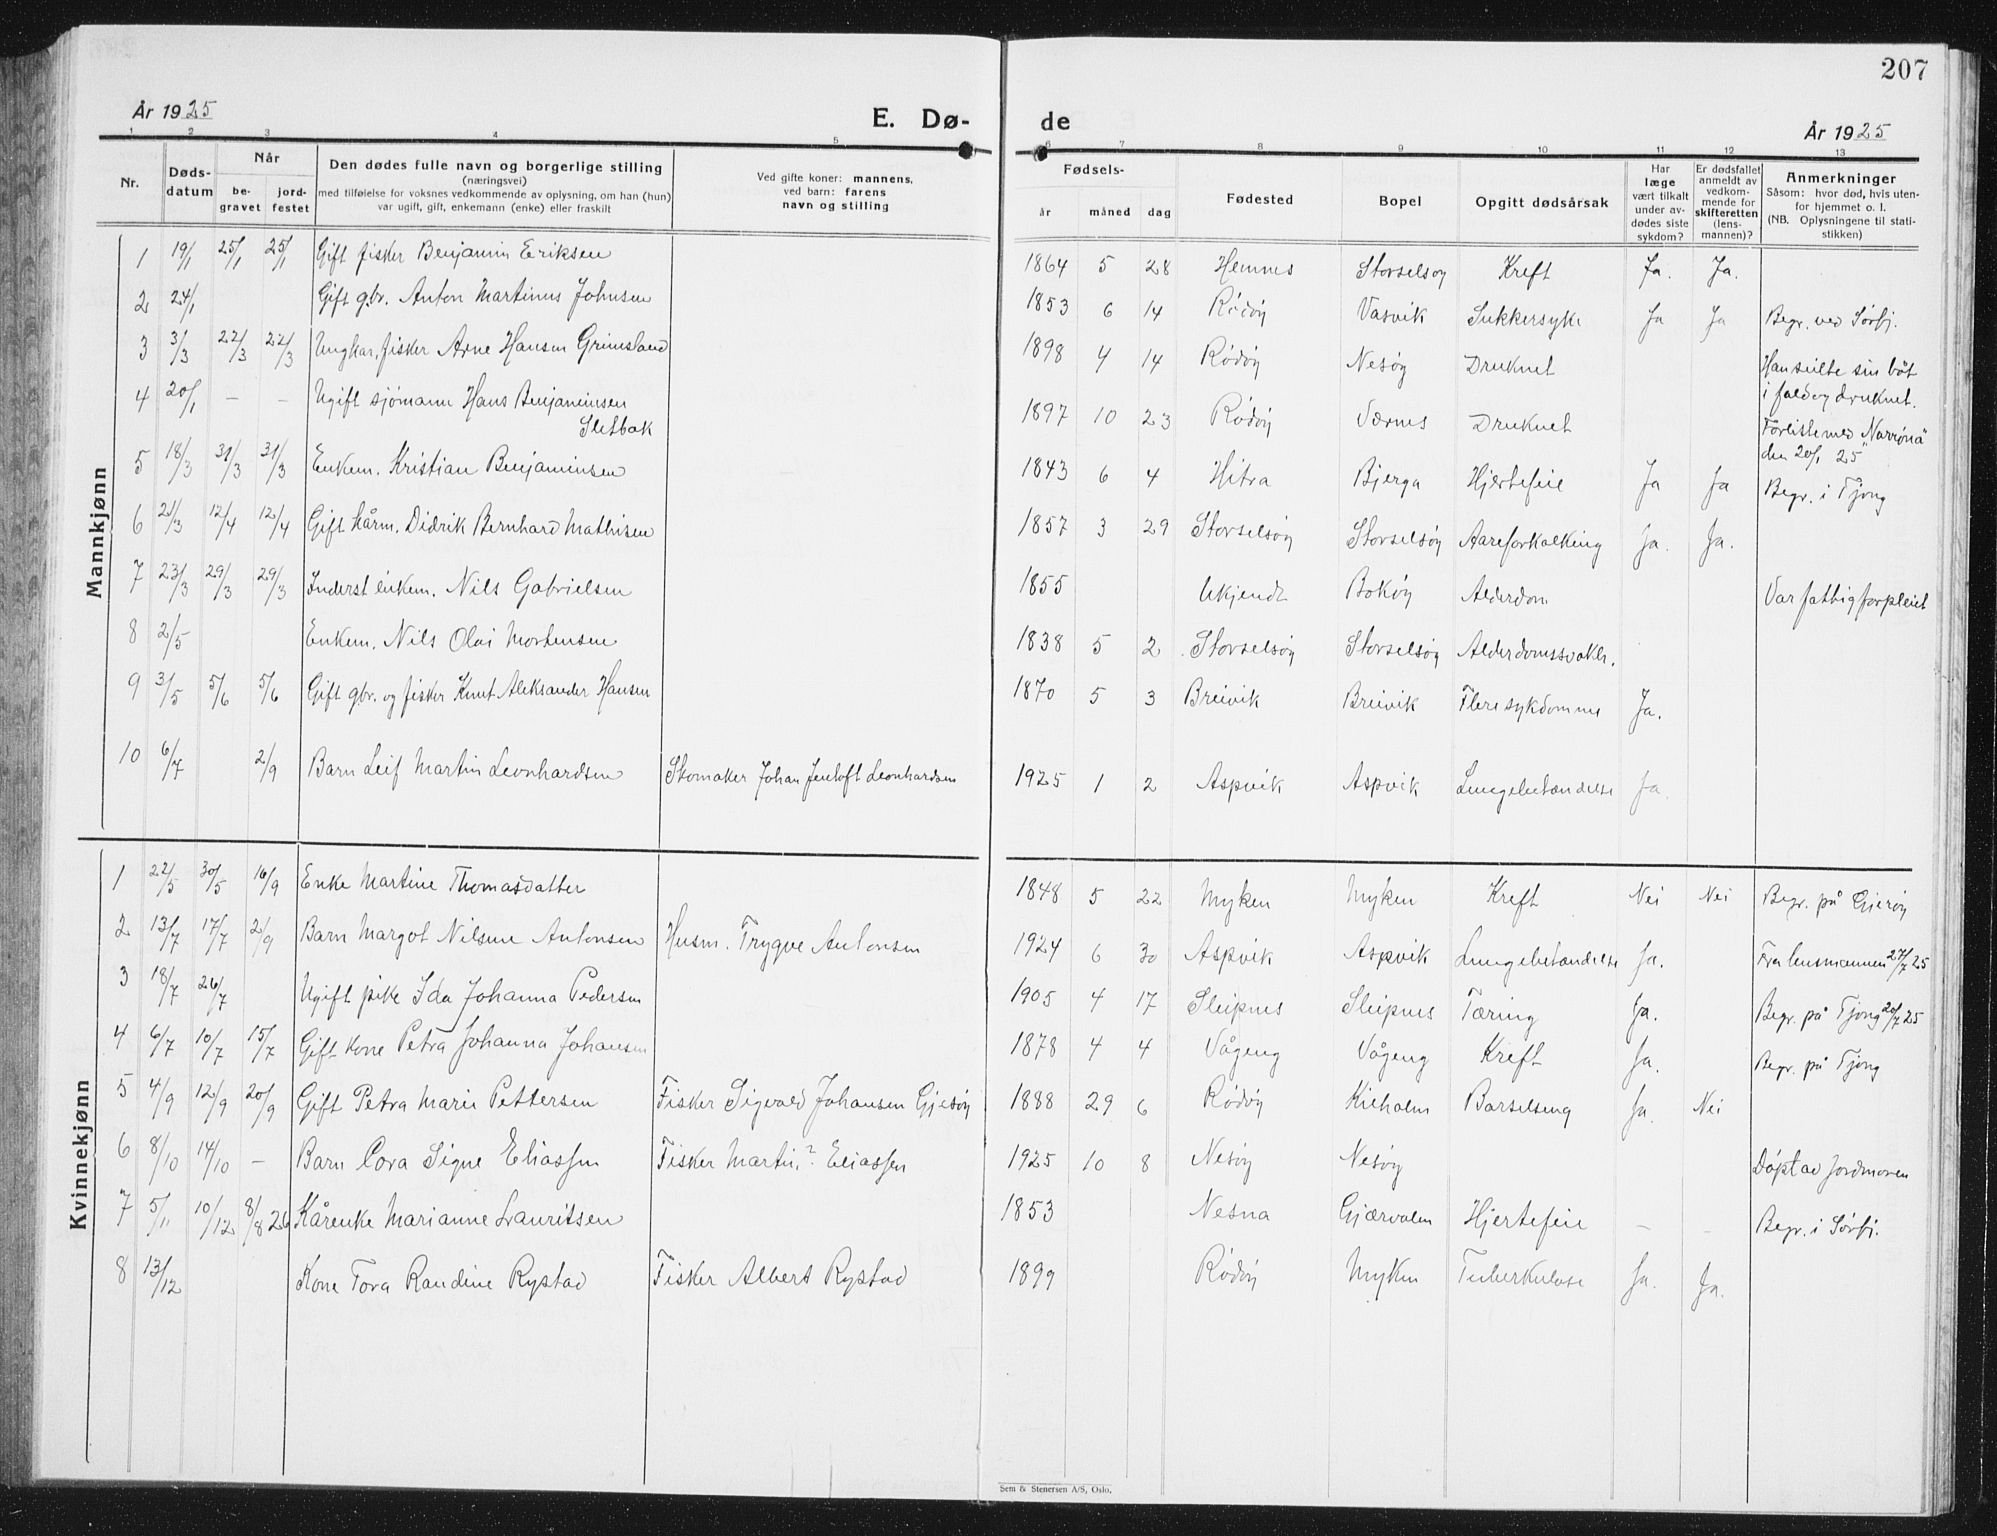 207
År 1925
E. Dø-
de
År 1925
1 2 3 4 5 6 7 8 9 10 11 12 13
Nr.
Døds-
datum
Når
be-
gravet
jord-
festet
Den dødes fulle navn og borgerlige stilling
(næringsvei)
med tilføielse for voksnes vedkommende av oplysning, om han (hun)
var ugift, gift, enkemann (enke) eller fraskilt
Ved gifte koner: mannens,
ved barn: farens
navn og stilling
Fødsels-
år måned dag
Fødested
Bopel
Opgitt dødsårsak
Har
læge
vært tilkalt
under av-
dødes siste
sykdom?
Er dødsfallet
anmeldt av
vedkom-
mende for
skifteretten
(lens-
mannen)?
Anmerkninger
Såsom: hvor død, hvis uten-
for hjemmet o. l.
(NB. Oplysningene til stati-
stikken)
Mannkjønn
1 19/1 25/1 25/1 Gift fisker Benjamin Eriksen 1864 5 28 Hemnes Storselsøy Kreft Ja. Ja.
2 24/1 Gift gbr. Anton Martinus Johnsen 1853 6 14 Rödöy Vasvik Sukkersyke Ja Ja Begr. ved Sörfj.
3 3/3 22/3 22/3 Ungkar, fisker Arne Hansen Grimsland 1898 4 14 Rödöy Nesöy Druknet Han seilte sin båt
i fald og druknet.
4 20/1 – – Ugift sjömann Hans Benjaminsen
Sletbak 1897 10 23 Rödöy Værnes Druknet Forliste med "Narröna"
den 20/1 25
5 18/3 31/3 31/3 Enkem. Kristian Benjaminsen 1843 6 4 Hitra Bjerga Hjertefeil Ja Ja Begr. i Tjong
6 21/3 12/4 12/4 Gift kårm. Didrik Bernhard Mathisen 1857 3 29 Storselsöy Storselsöy Aareforkalking Ja. Ja.
7 23/3 29/3 29/3 Inderst enkem. Nils Gabrielsen 1855 Ukjendt Boköy Alderdom Var fattigforpleiet
8 2/5 Enkem. Nils Olai Mortensen 1838 5 2 Storselsöy Storselsöy Alderdomssvakh.
9 3/5 5/6 5/6 Gift gbr. og fisker Knut Aleksander Hansen 1870 5 3 Breivik Breivik Flere sykdomme Ja.
10 6/7 2/9 Barn Leif Martin Leonhardsen Skomaker Johan Jentoft Leonhardsen 1925 1 2 Aspvik Aspvik Lungebetændelse Ja.
Kvinnekjønn
1 22/5 30/5 16/9 Enke Martine Thomasdatter 1848 5 22 Myken Myken Kreft Nei Nei Begr. på Gjeröy
2 13/7 17/7 2/9 Barn Margot Nilsine Antonsen Husm. Trygve Antonsen 1924 6 30 Aspvik Aspvik Lungebetændelse Ja. Fra lensmannen 27/7 25
3 18/7 26/7 Ugift pike Ida Johanna Pedersen 1905 4 17 Sleipnes Sleipnes Tæring Ja. Begr. på Tjong 20/7 25
4 6/7 10/7 15/7 Gift kone Petra Johanna Johansen 1878 4 4 Vågeng Vågeng Kreft Ja. Begr. på Tjong
5 4/9 12/9 20/9 Gift Petra Marie Pettersen Fisker Sigvald Johansen Gjesöy 1888 29 6 Rödöy Kilholm Barselseng Ja. Nei
6 8/10 14/10 – Barn Cora Signe Eliassen Fisker Martin? Eliassen 1925 10 8 Nesöy Nesöy Döpt av Jordmoren
7 5/11 10/12 8/8 26 Kårenke Marianne Lauritsen 1853 Nesna Gjærvalen Hjertefeil – – Begr. i Sörfj.
8 13/12 Kone Tora Randine Rystad Fisker Albert Rystad 1899 Rödöy Myken Tuberkulose Ja. Ja.
Sem & Stenersen A/S, Oslo.